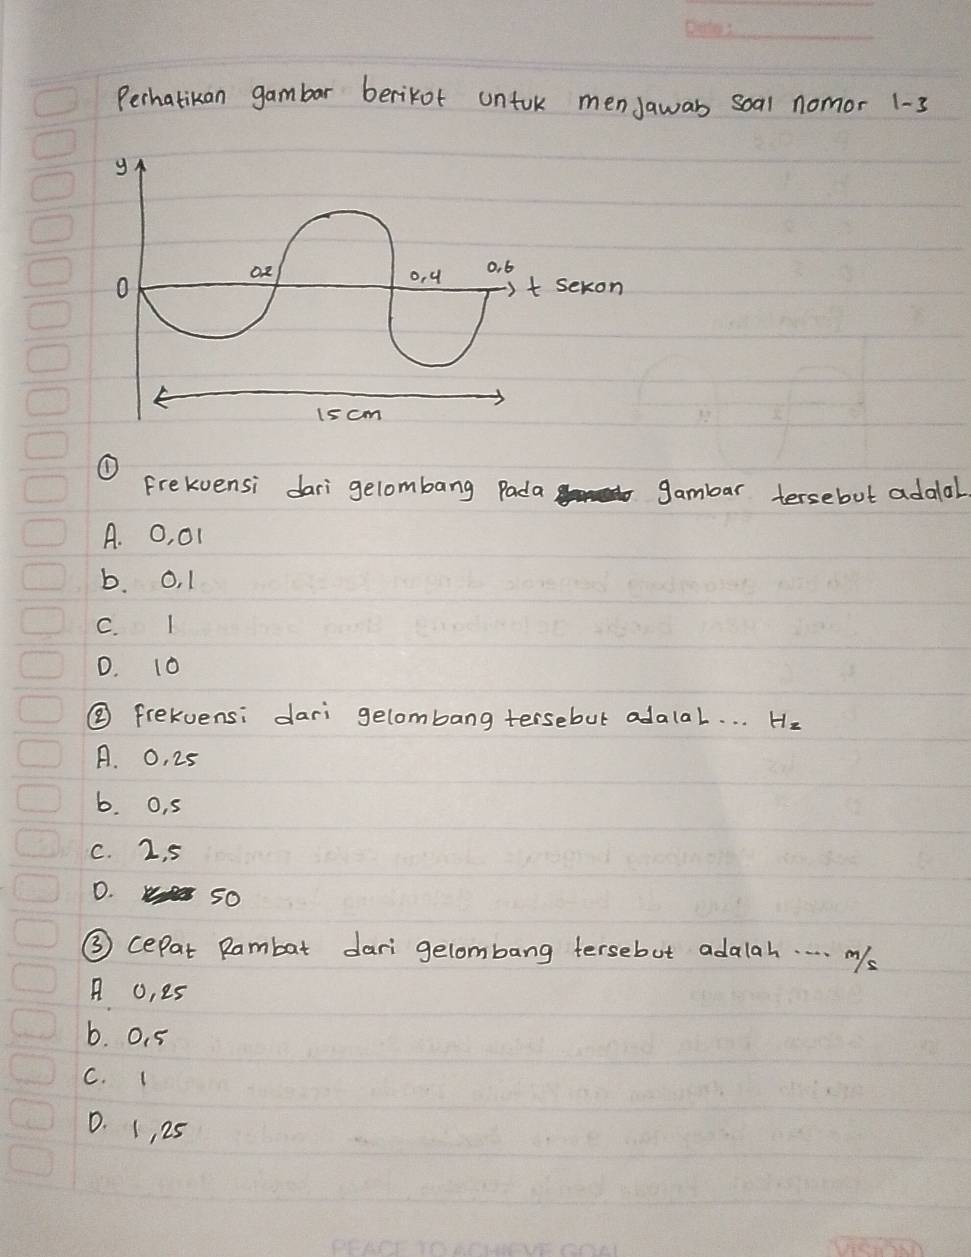 Date :
Perhatikan gambar berikut untuk menjawab soal nomor 1-3
y
0
0,2
0,4
0,6
t sekon
15 cm
① Frekuensi dari gelombang pada gambar tersebut adalah
A. 0,01
b. 0,1
C. 1
D. 10
② frekuensi dari gelombang tersebut adalah... Hz
A. 0,25
b. 0,5
C. 2,5
D. 50
③ cepat Rambat dari gelombang tersebut adalah .... m/s
A 0,25
b. 0,5
C. 1
D. 1,25
PEACE TO ACHIEVE GOAL
VISION